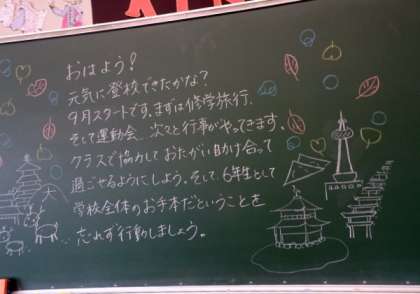 おはよう!
元気に登校できたかな?
9月スタートです。まずは修学旅行、
そして運動会、次々と行事がやってきます。
クラスで協力しておたがい助け合って
過ごせるようにしよう。そして、6年生として
学校全体のお手本だということを
忘れず行動しましょう。